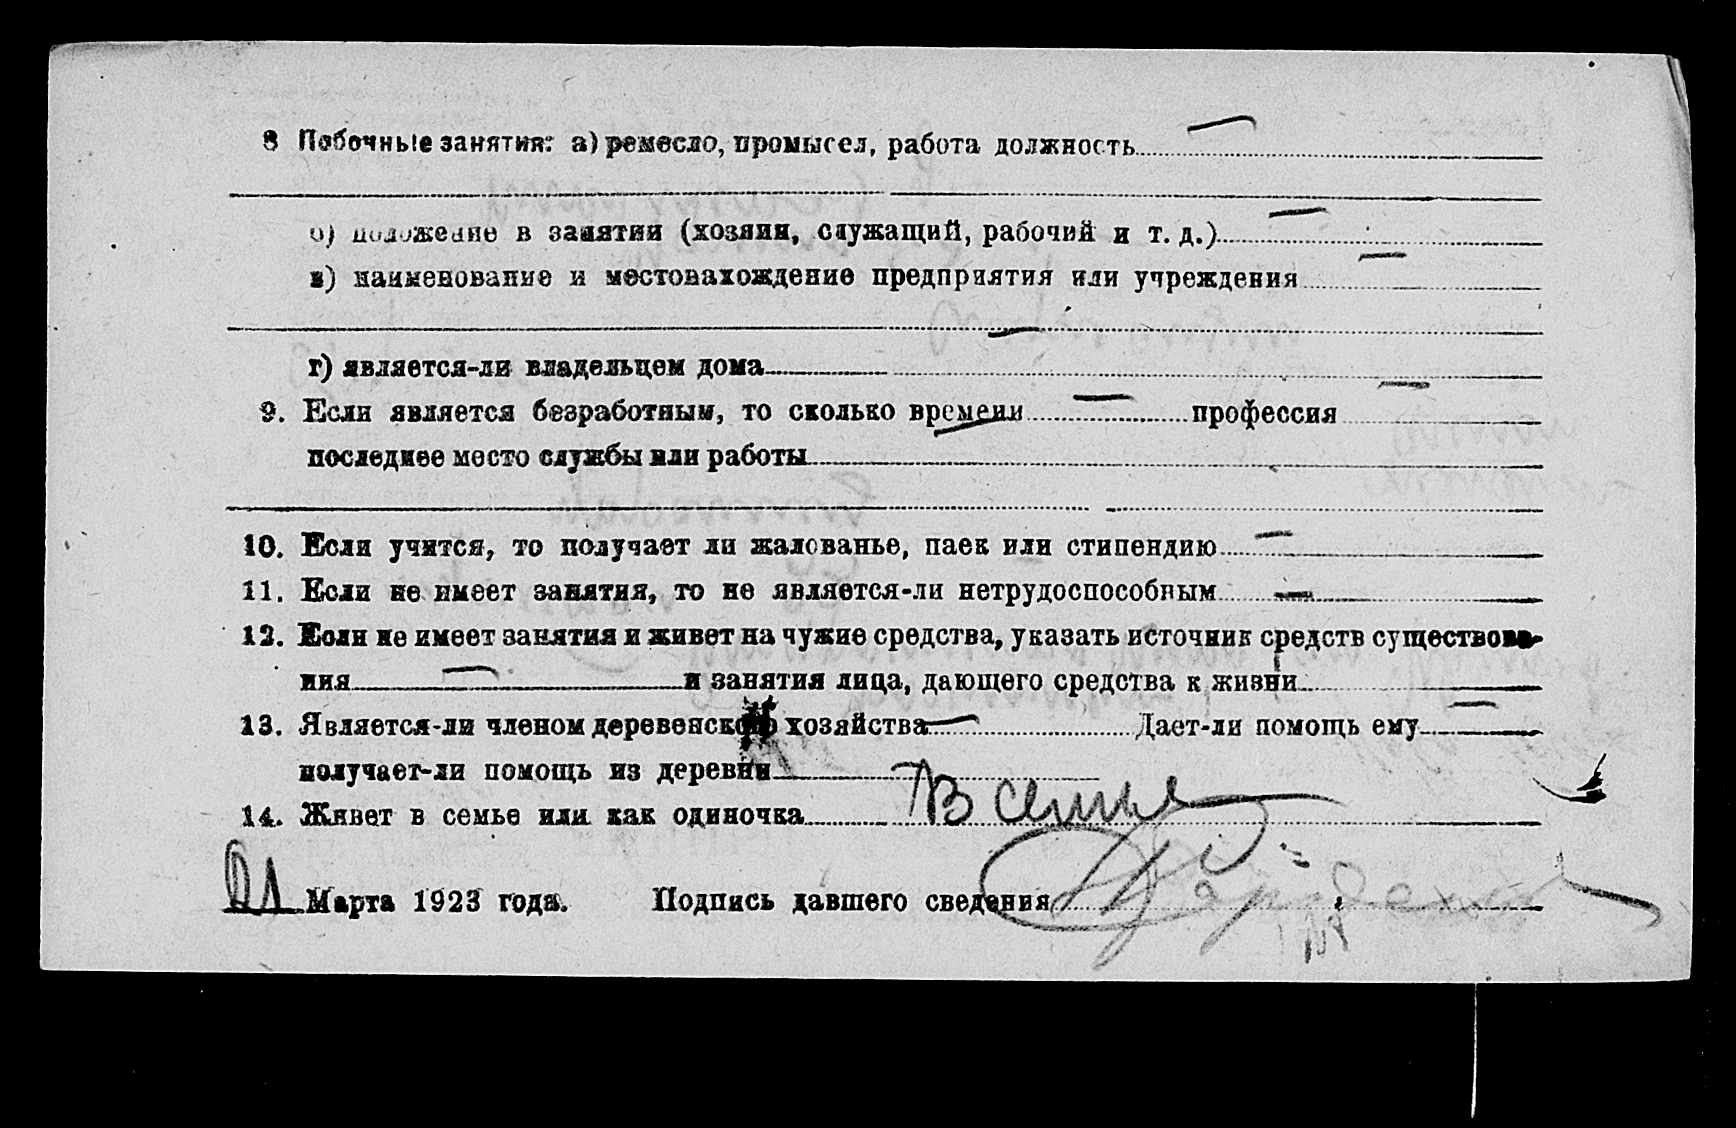 8 Побочные занятия: а) ремесло, промысел, работа должность —
б) положение в занятии (хозяин, служащий, рабочий и т. д.) —
в) наименование и местонахождение предприятия или учреждения —
—
г) является-ли владельцем дома
9. Если является безработным, то сколько времени — профессия —
последнее место службы или работы
10. Если учится, то получает ли жалованье, паек или стипендию —
11. Если не имеет занятия, то не является-ли нетрудоспособным —
12. Если не имеет занятия и живет на чужие средства, указать источник средств существова-
ния — и занятия лица, дающего средства к жизни
13. Является-ли членом деревенского хозяйства — Дает-ли помощь ему —
получает-ли помощь из деревни
14. Живет в семье или как одиночка В семье
Марта 1923 года. Подпись давшего сведения